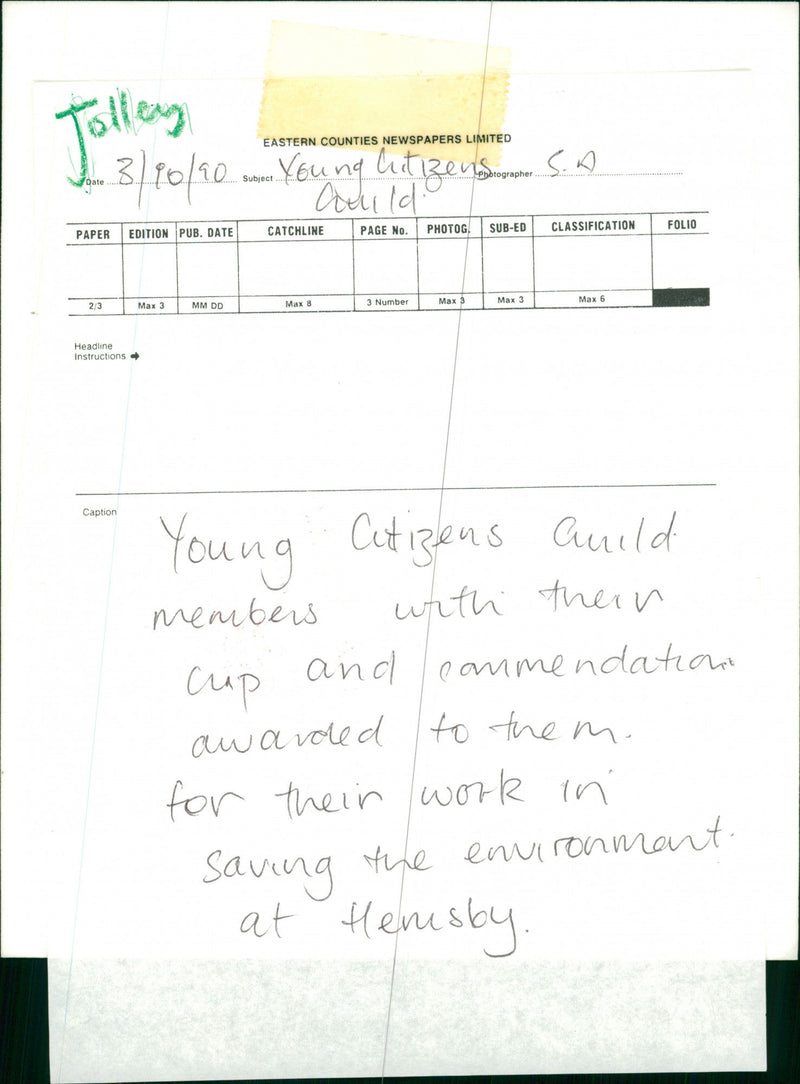 Jolley
EASTERN COUNTIES NEWSPAPERS LIMITED
Date 3/10/90 Subject Young Citizens Photographer S.A
Guild.
PAPER EDITION PUB. DATE CATCHLINE PAGE No. PHOTOG. SUB-ED CLASSIFICATION FOLIO
2/3 Max 3 MM DD Max 8 3 Number Max 3 Max 3 Max 6
Headline
Instructions
Caption
Young Citizens Guild
members with their
cup and commendation
awarded to them.
for their work in
saving the environment.
at Hemsby.